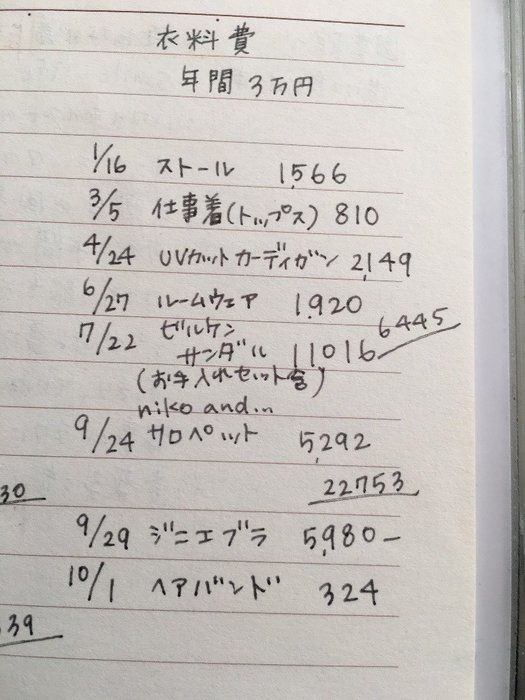 衣料費
年間 3万円
1/16 ストール 1,566
3/5 仕事着(トップス) 810
4/24 UVカットカーディガン 2,149
6/27 ルームウェア 1,920
6445
7/22 ビルケン
サンダル 11016
(お手入れセット含)
niko and...
9/24 サロペット 5,292
30
22753
9/29 ジニエブラ 5,980-
10/1 ヘアバンド 324
39